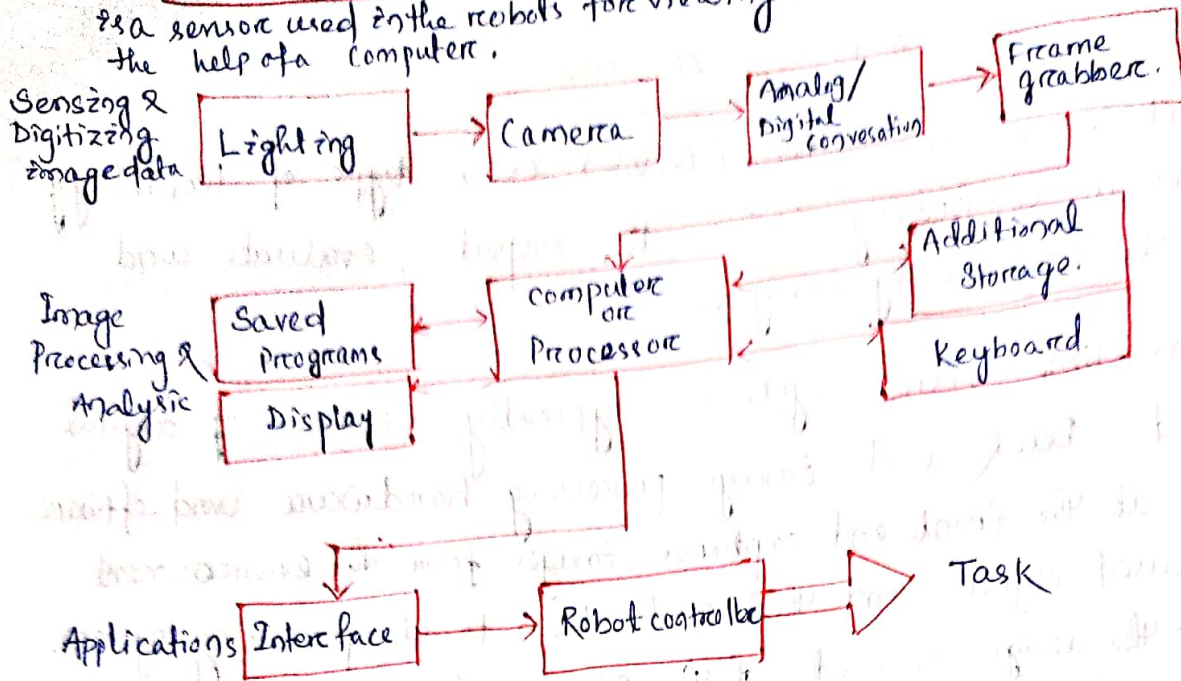 is a sensor used in the robots for
the help of a computer.
Sensing &
Digitizing
image data
Lighting
Camera
Analog/
Digital
Convesation
Frame
grabber.
Image
Processing &
Analysic
Saved
Programs
Display
Computer
or
Processor
Additional
Storage.
Keyboard.
Applications
Interface
Robot controlbe
Task